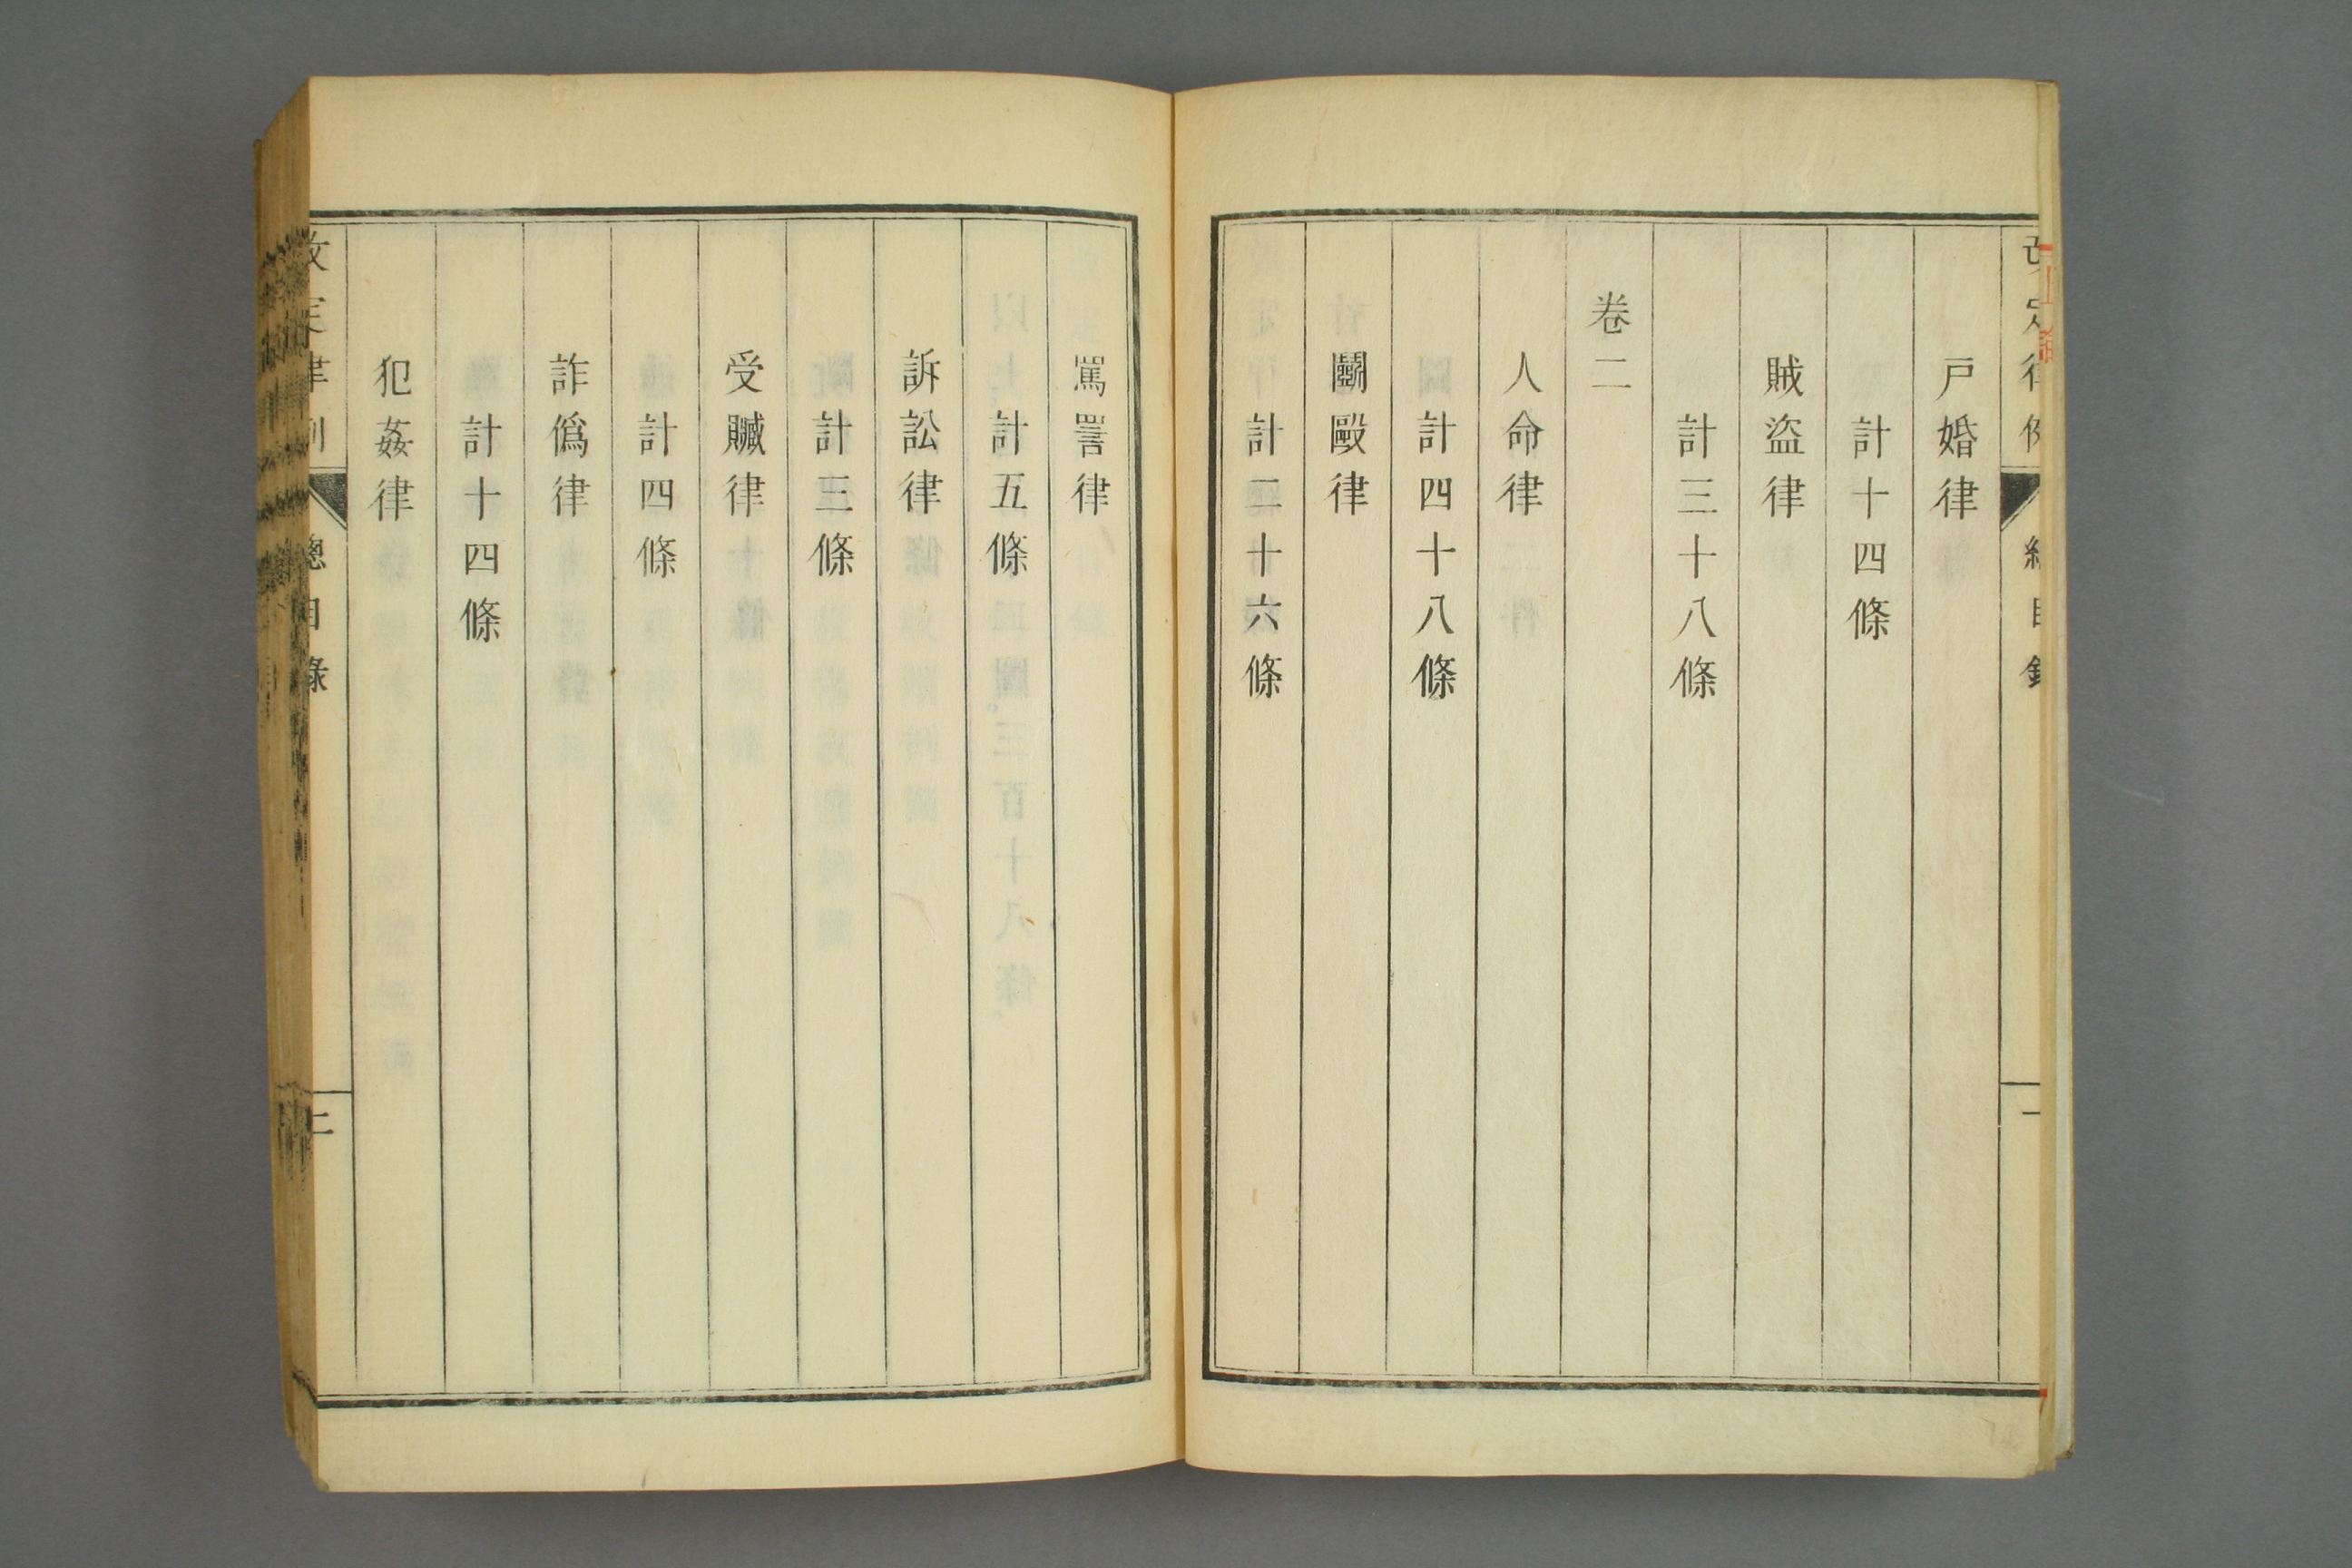 改定律例
總目錄
一
戸婚律
計十四條
賊盜律
計三十八條
卷二
人命律
計四十八條
鬭毆律
計二十六條
罵詈律
計五條
訴訟律
計三條
受贓律
計四條
詐僞律
計十四條
犯姦律
改定律例
總目錄
二